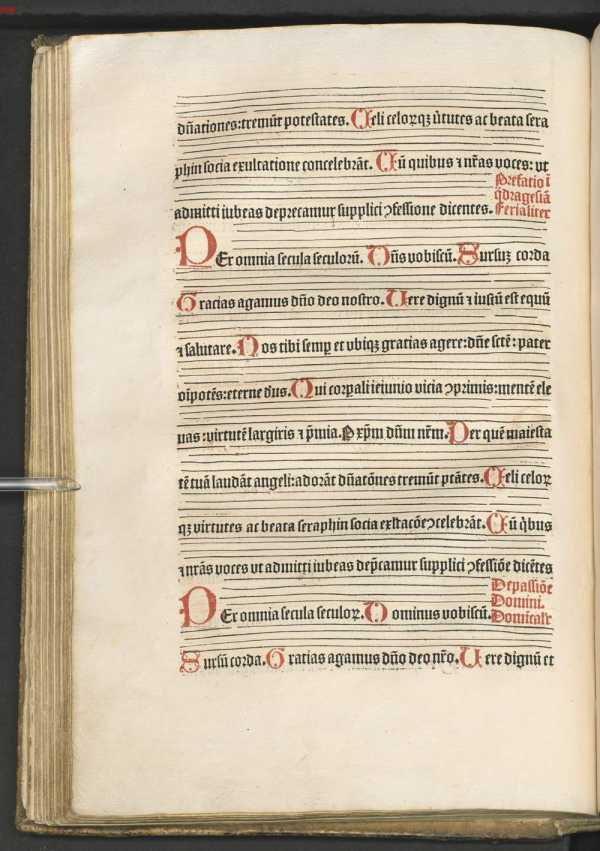 dn̄ationes:tremūt potestates. Celi celorꝝqꝫ v̄tutes ac beata sera
phin socia exultatione concelebrāt. Cū quibus ⁊ nr̄as voces: vt
Prefatio ī
q̄dragesīa
Ferialiter
admitti iubeas deprecamur supplici ꝯfessione dicentes.
PEr omnia secula seculorū. Dn̄s vobiscū. Sursuꝫ corda
Gracias agamus dn̄o deo nostro. Uere dignū ⁊ iustū est equū
⁊ salutare. Nos tibi semꝑ et vbiqꝫ gratias agere: dn̄e sctē: pater
oīpotēs: eterne dꝰus. Qui corꝑali ieiunio vicia ꝯprimis: mentē ele
uas: virtutē largiris ⁊ p̄mia. P xp̄m dn̄m nr̄m. Per quē maiesta
tē tuā laudāt angeli: adorāt dn̄atōnes tremūt ptātes. Celi celoꝝ
qꝫ virtutes ac beata seraphin socia exltacōe ꝯcelebrāt. Cū q̇bus
⁊ nr̄as voces vt admitti iubeas dep̄camur supplici ꝯfessiōe dicētes
De passiōe
Domini.
Domīcalr̄
PEr omnia secula seculoꝝ. Dominus vobiscū.
Sursū corda. Gratias agamus dn̄o deo nr̄o. Uere dignū et